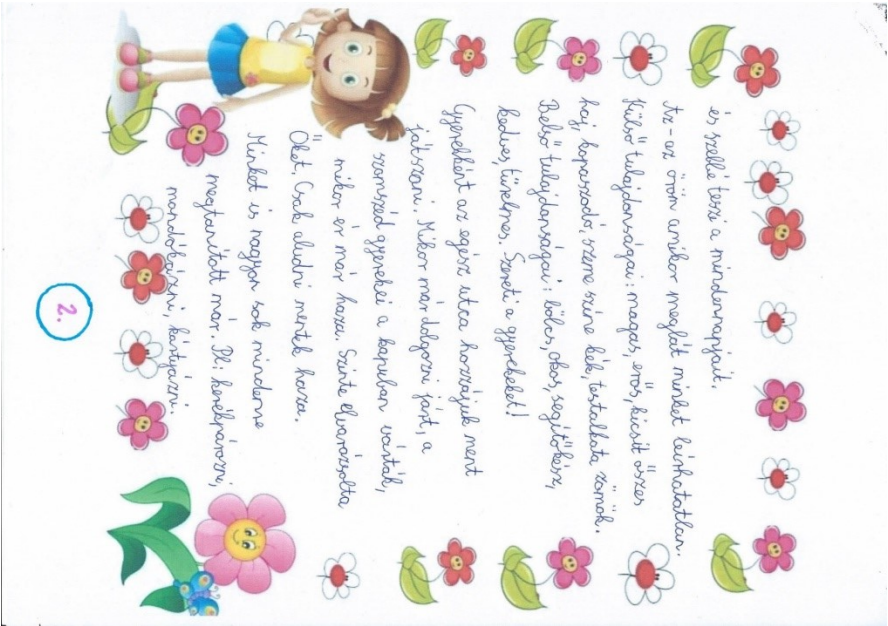 és széllé teszi a mindennapjait.
Az-az öröm amikor meglát minket leírhatatlan.
Külső tulajdonságai: magas, erős, kicsit őszes
haj, kopaszodó, szeme színe kék, testalkata zömök.
Belső tulajdonságai: bölcs, okos, segítőkész,
kedves, türelmes. Szereti a gyerekeket!
Gyerekként az egész utca hozzájuk ment
játszani. Mikor már dolgozni járt, a
szomszéd gyerekei a kapuban várták,
mikor ér már haza. Szinte elvarázsolta
Őket. Csak aludni mentek haza.
Minket is nagyon sok mindenre
megtanított már. Pl: kerékpározni,
mondókázni, kártyázni.
2.